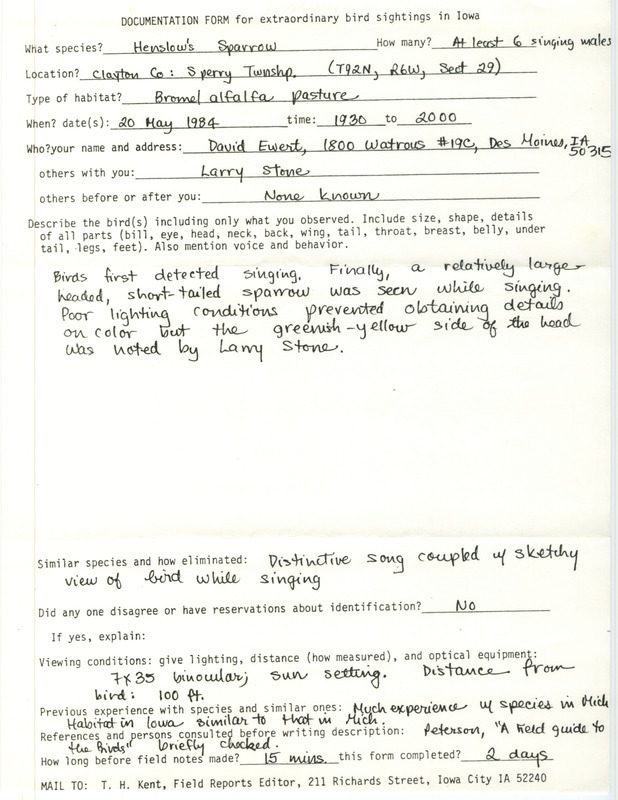 DOCUMENTATION FORM for extraordinary bird sightings in Iowa
What species? Henslow's Sparrow How many? At least 6 singing males
Location? Clayton Co: Sperry Twnshp. (T92N, R6W, Sect 29)
Type of habitat? Brome/alfalfa pasture
When? date(s): 20 May 1984 time: 1930 to 2000
Who? your name and address: David Ewert, 1800 Watrous #19C, Des Moines, IA
50315
others with you: Larry Stone
others before or after you: None known
Describe the bird(s) including only what you observed. Include size, shape, details
of all parts (bill, eye, head, neck, back, wing, tail, throat, breast, belly, under
tail, legs, feet). Also mention voice and behavior.
Birds first detected singing. Finally, a relatively large-
headed, short-tailed sparrow was seen while singing.
Poor lighting conditions prevented obtaining details
on color but the greenish-yellow side of the head
was noted by Larry Stone.
Similar species and how eliminated: Distinctive song coupled w/ sketchy
view of bird while singing
Did any one disagree or have reservations about identification? No
If yes, explain:
Viewing conditions: give lighting, distance (how measured), and optical equipment:
7x35 binocular; sun setting. Distance from
bird: 100 ft.
Previous experience with species and similar ones: Much experience w/ species in Mich
Habitat in Iowa similar to that in Mich.
References and persons consulted before writing description: Peterson, "A Field guide to
the Birds" briefly checked.
How long before field notes made? 15 mins. this form completed? 2 days
MAIL TO: T. H. Kent, Field Reports Editor, 211 Richards Street, Iowa City IA 52240